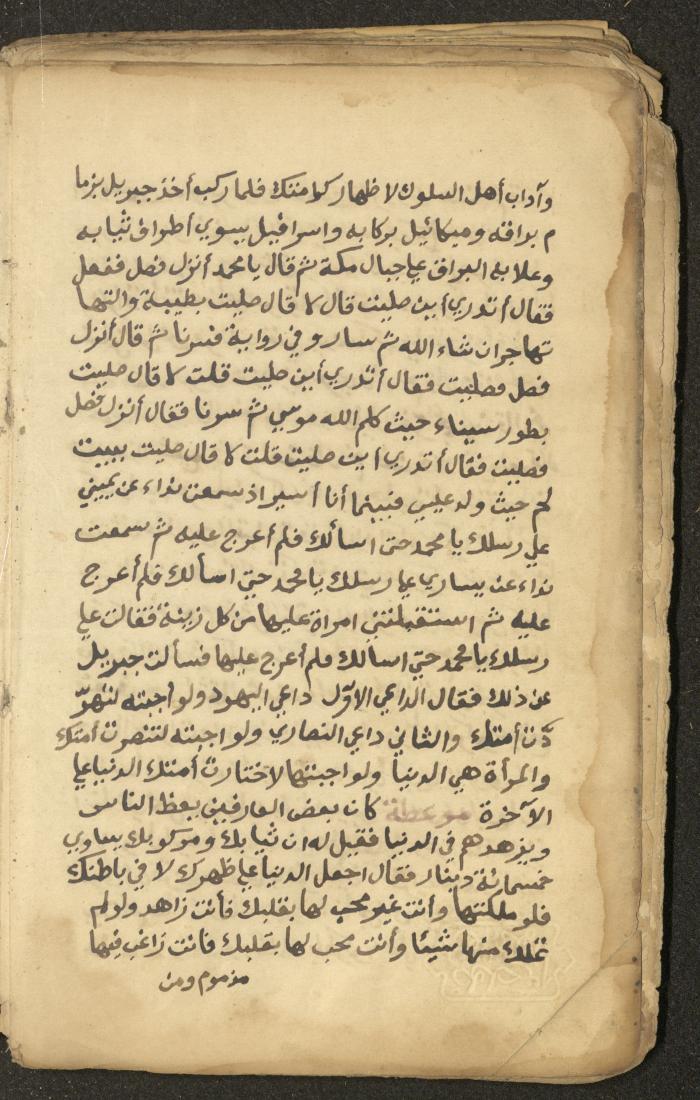 وآداب أهل السلوك لاظهار كرامتك فلما ركب أخذ جبريل بزما
م براقه وميكائيل بركابه واسرافيل يسوي أطواق ثيابه
وعلا به البراق علي جبال مكة ثم قال يا محمد أنزل فصل ففعل
فقال أتدري أين صليت قال لا قال صليت بطيبة واليها
تهاجر ان شاء الله ثم سار وفي رواية فسرنا ثم قال أنزل
فصل فصليت فقال أتدري أين صليت قلت لا قال صليت
بطور سيناء حيث كلم الله موسي ثم سرنا فقال أنزل فصل
فصليت فقال أتدري اين صليت قلت لا قال صليت ببيت
لحم حيث ولد عليسي فبينما أنا أسير اذ سمعت نداء عن يميني
علي رسلك يا محمد حتى اسألك فلم أعرج عليه ثم سمعت
نداء عن يساري علي رسلك يا محمد حتي اسألك فلم أعرج
عليه ثم استقبلتني امراة عليها من كل زينة فقالت علي
رسلك يا محمد حتي اسالك فلم أعرج عليها فسألت جبريل
عن ذلك فقال الداعي الاوّل داعي اليهود ولو أجبته لتهوّ
دت أمتك والثاني داعي النصاري ولو اجبته لتنصرت أمتك
والمرأة هي الدنيا ولو اجبتها لاختارت أمتك الدنيا علي
الآخرة موعظة كان بعض العارفين يعظ الناس
ويزهدهم في الدنيا فقيل له ان ثيابك ومركوبك يساوي
خمسمائة دينار فقال اجعل الدنيا علي ظهرك لا في باطنك
فلو ملكتها وأنت غير محب لها بقلبك فأنت زاهد ولو لم
تملك منها شيئا وأنت محب لها بقلبك فانت راغب فيها
مذموم ومن